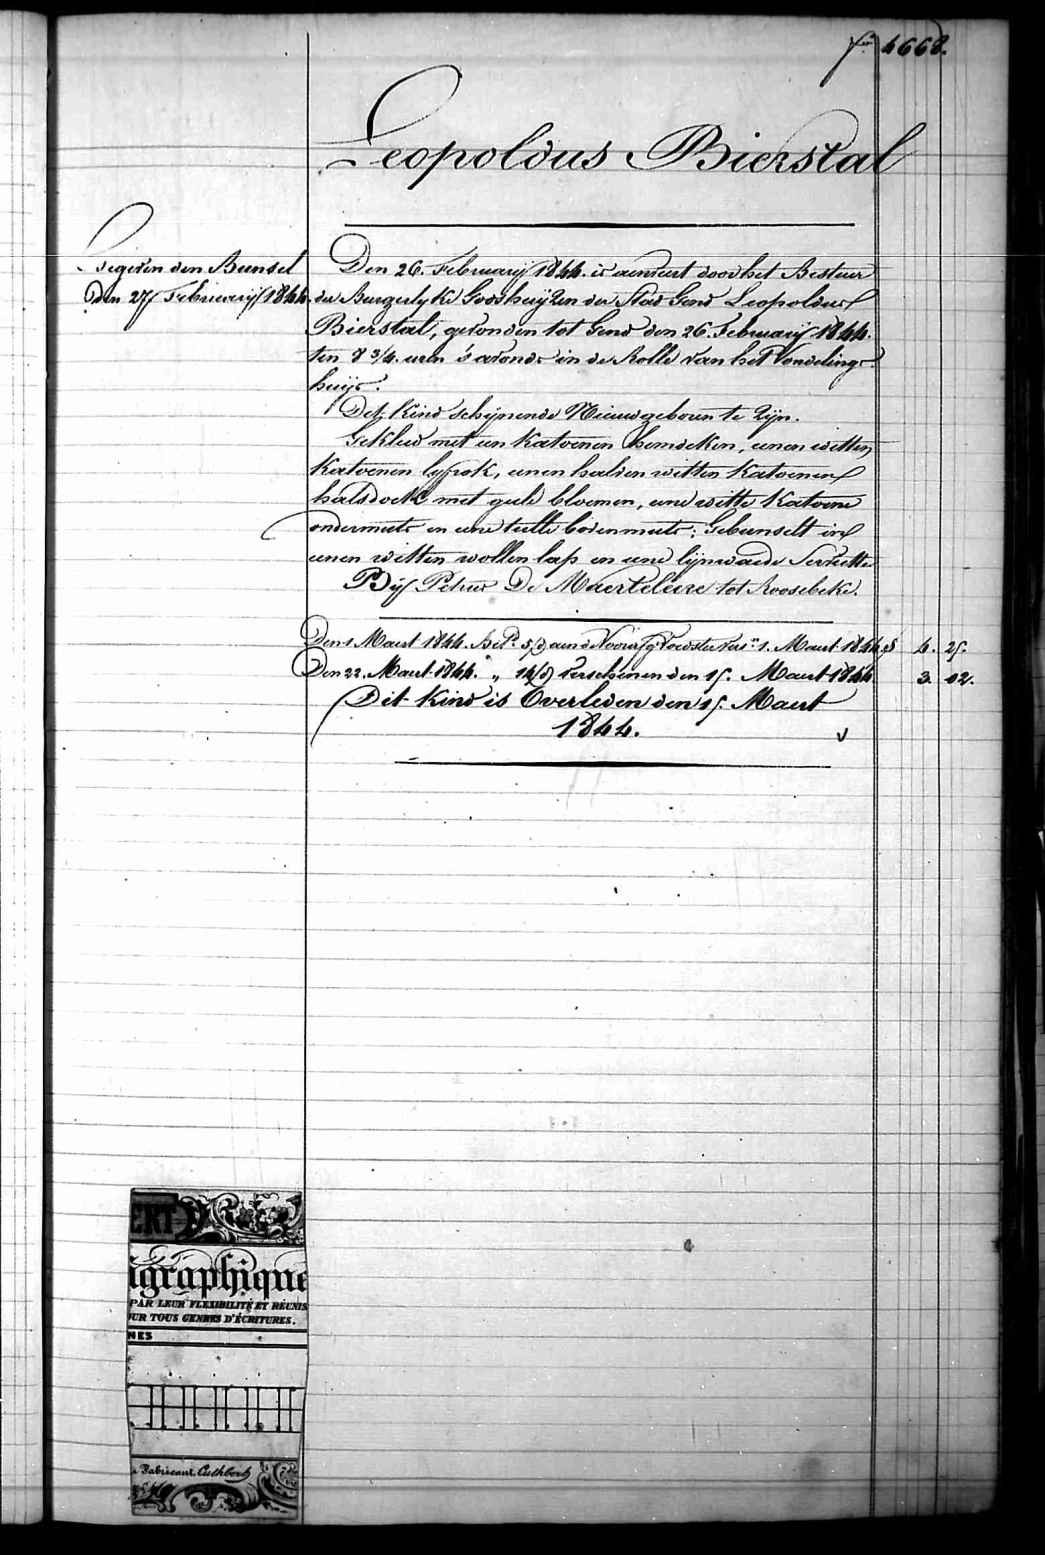 f° 4668.
Leopoldus Bierstal
Gegeven den Bunsel
den 27 February 1844.
Den 26. February 1844. is aenveert door het Bestuer
der Burgerlyke Godshuijzen der Stad Gend Leopoldus
Bierstal, gevonden tot Gend den 26. February 1844.
ten 8 3/4. uren 's avonds in de Rolle van het Vondelings-
huijs.
Dit Kind schijnende Nieuwgeboren te Zyn.
Gekleed met een Katoenen hemdeken, eenen witten
Katoenen lyfrok, eenen halven witten Katoenen
halsdoek met geele bloemen, eene witte Katoene
ondermuts en eene tulle bovenmuts; Gebunselt in
eenen witten wollen lap en eene lijnwaede Serviette
Bij Petrus De Maerteleire tot Roosebeke.
Den 1 Maert 1844. Bet. 5/d aen de Voedster 1. Maert 1844 4. 25.
Den 22. Maert 1844. " 14/d verschenen den 15. Maert 1844 3. 02.
Dit Kind is Overleden den 15. Maert
1844.
ERT
igraphique
PAR LEUR FLEXIBILITÉ ET RÉUNIS
UR TOUS GENRES D'ÉCRITURES.
NES
Fabricant. Cuthbert